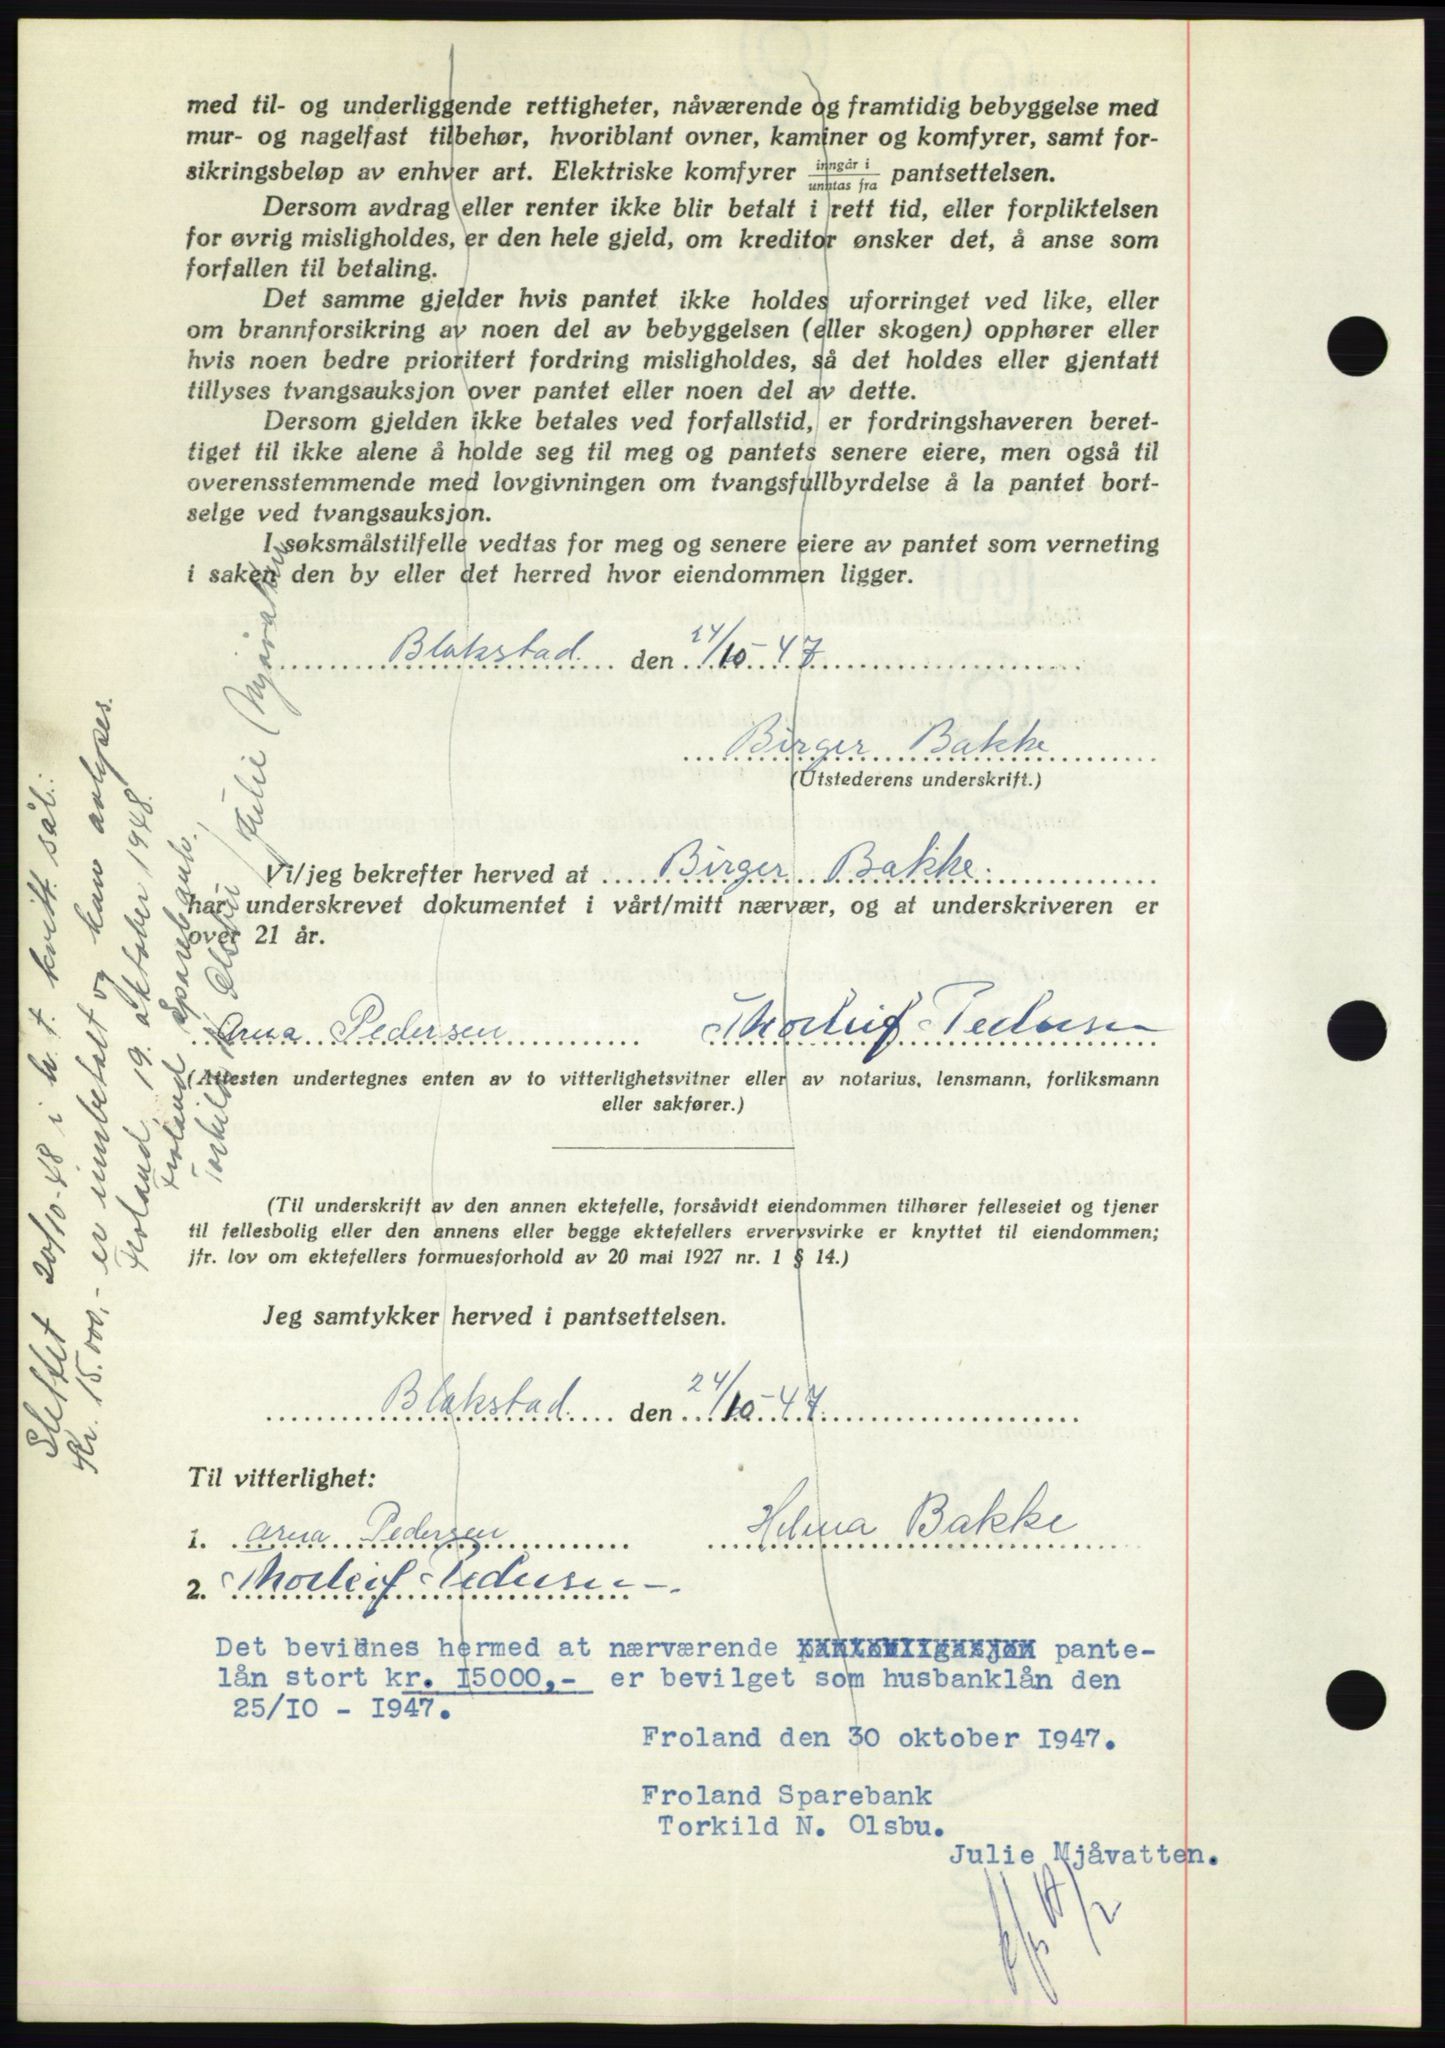 med til- og underliggende rettigheter, nåværende og framtidig bebyggelse med
mur- og nagelfast tilbehør, hvoriblant ovner, kaminer og komfyrer, samt for-
sikringsbeløp av enhver art. Elektriske komfyrer inngår i / unntas fra pantsettelsen.
Dersom avdrag eller renter ikke blir betalt i rett tid, eller forpliktelsen
for øvrig misligholdes, er den hele gjeld, om kreditor ønsker det, å anse som
forfallen til betaling.
Det samme gjelder hvis pantet ikke holdes uforringet ved like, eller
om brannforsikring av noen del av bebyggelsen (eller skogen) opphører eller
hvis noen bedre prioritert fordring misligholdes, så det holdes eller gjentatt
tillyses tvangsauksjon over pantet eller noen del av dette.
Dersom gjelden ikke betales ved forfallstid, er fordringshaveren beret-
tiget til ikke alene å holde seg til meg og pantets senere eiere, men også til
overensstemmende med lovgivningen om tvangsfullbyrdelse å la pantet bort-
selge ved tvangsauksjon.
I søksmålstilfelle vedtas for meg og senere eiere av pantet som verneting
i saken den by eller det herred hvor eiendommen ligger.
Blakstad den 24/10-47
Birger Bakke
(Utstederens underskrift.)
Vi/jeg bekrefter herved at Birger Bakke
har underskrevet dokumentet i vårt/mitt nærvær, og at underskriveren er
over 21 år.
Arna Pedersen Thorleif Pedersen
(Attesten undertegnes enten av to vitterlighetsvitner eller av notarius, lensmann, forliksmann
eller sakfører.)
(Til underskrift av den annen ektefelle, forsåvidt eiendommen tilhører felleseiet og tjener
til fellesbolig eller den annens eller begge ektefellers ervervsvirke er knyttet til eiendommen;
jfr. lov om ektefellers formuesforhold av 20 mai 1927 nr. 1 § 14.)
Jeg samtykker herved i pantsettelsen.
Blakstad den 24/10-47
Til vitterlighet:
1. Arna Pedersen Helma Bakke
2. Thorleif Pedersen
Det bevidnes hermed at nærværende pante-
lån stort kr. I5000,- er bevilget som husbanklån den
25/IO - I947.
Froland den 30 oktober I947.
Froland Sparebank
Torkild N. Olsbu.
Julie Mjåvatten.
Slettet 20/10-48 i h. t. kvitt. sål.:
Kr. 15.000,- er innbetalt og kan avlyses.
Froland, 19. oktober 1948.
Froland Sparebank.
Torkild N. Olsbu / Julie Mjåvatten